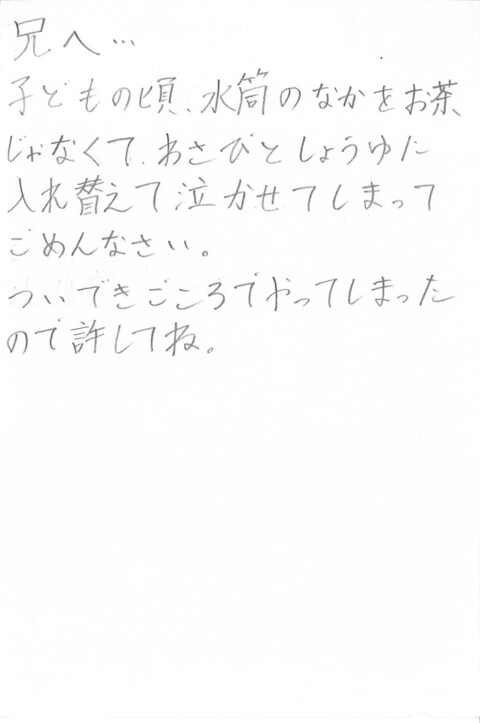 兄へ…
子どもの頃、水筒のなかをお茶、
じゃなくて、わさびとしょうゆに
入れ替えて泣かせてしまって
ごめんなさい。
ついできごころでやってしまった
ので許してね。